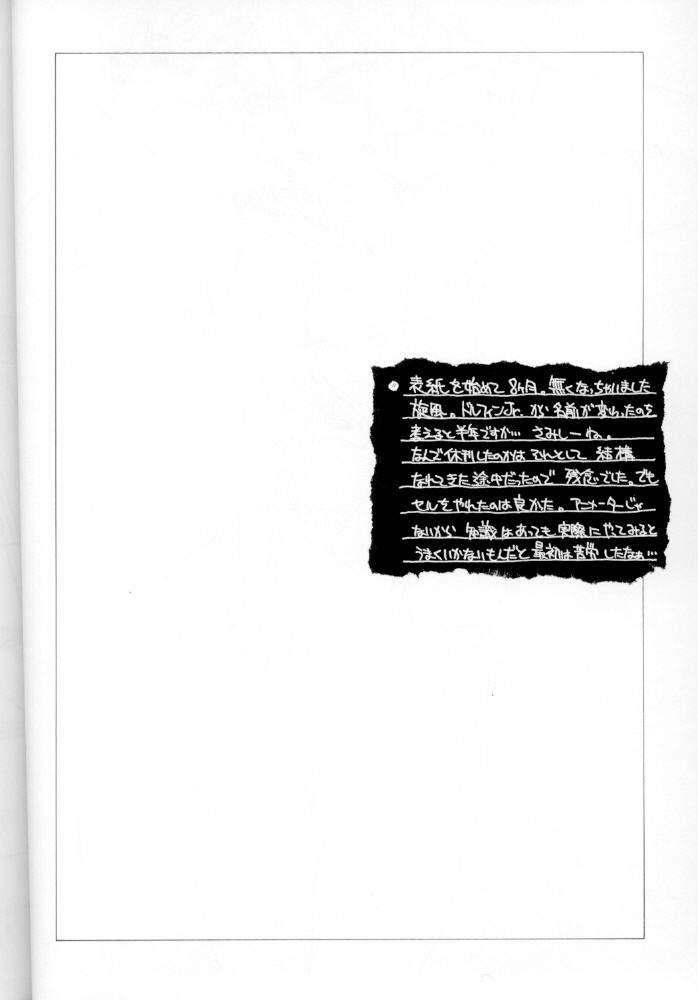 ●表紙を始めて8ヶ月。無くなっちゃいました
旋風。ドルフィンJr.から名前が変わったのを
考えると半年ですか… さみしーね。
なんで休刊したのかは それとして 結構
なれてきた途中だったので 残念でした。でも
セルをやれたのは良かった。アニメーターじゃ
ないから 知識はあっても実際にやってみると
うまくいかないもんだと最初は苦労したなぁ…